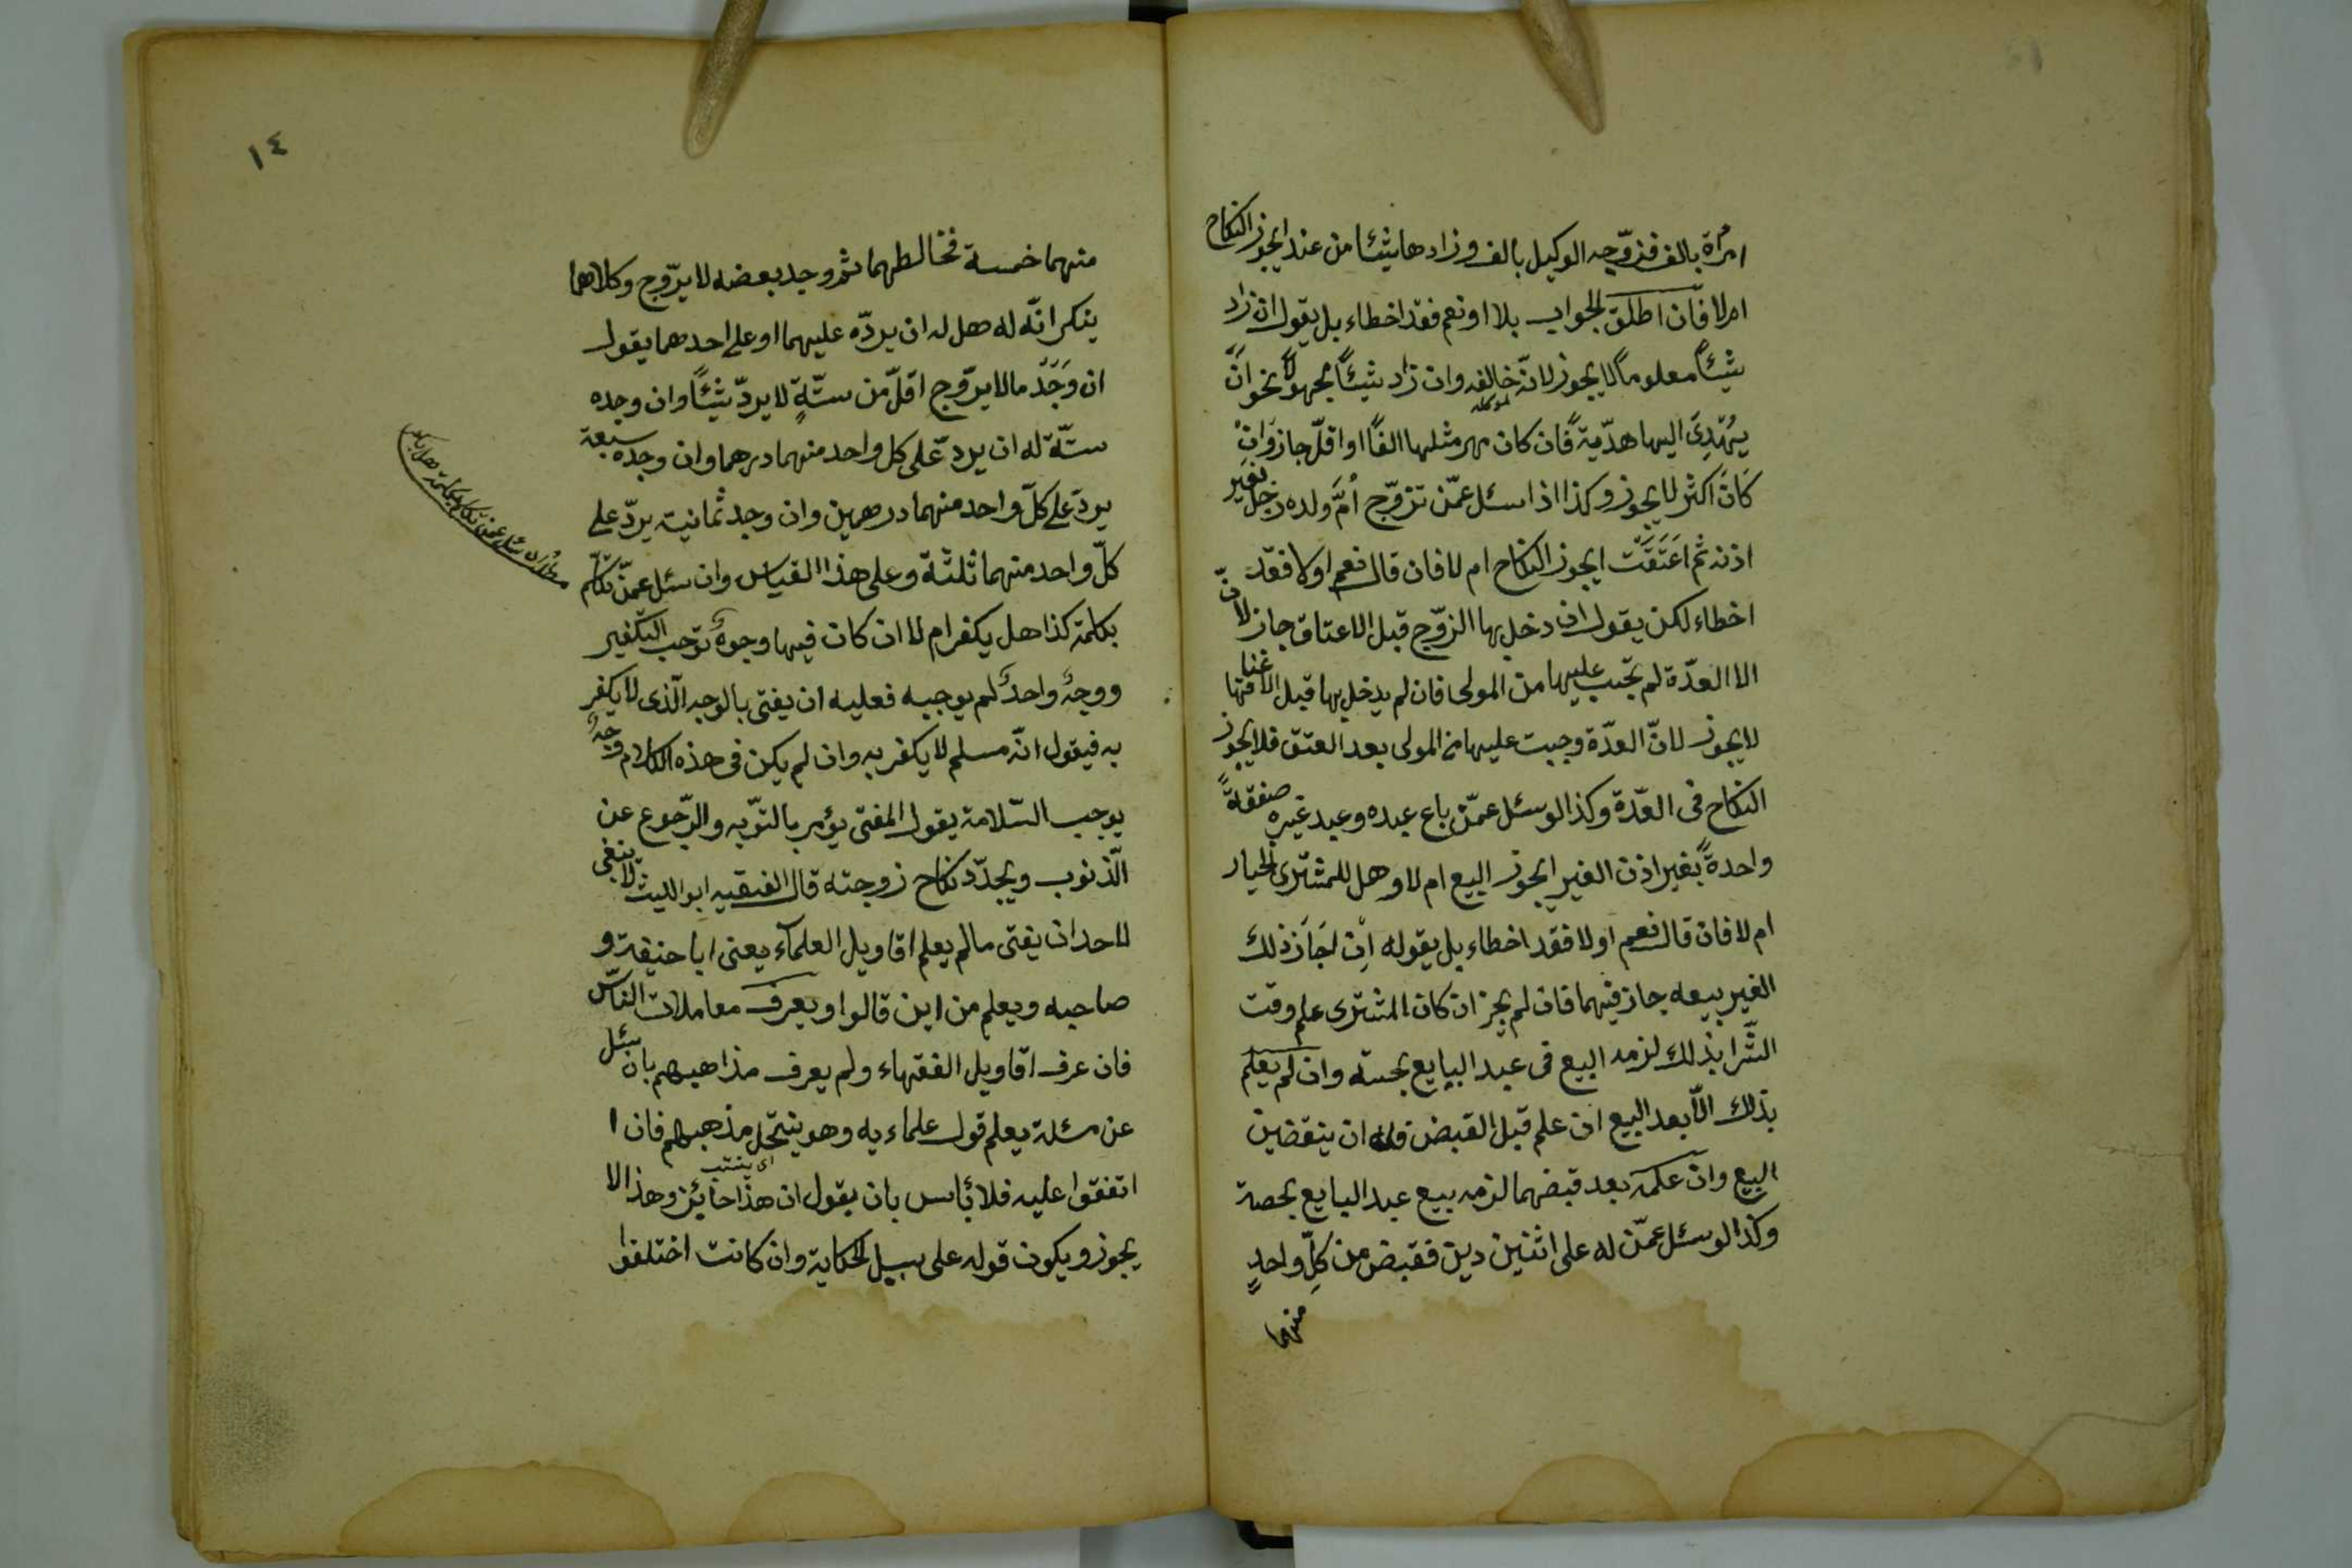 امرٔاة بالف فزوّجه الوكيل بالف وزادها شيئا من عند ايجوز النكاح
ام لا فان اطلق الجواب بلا او نعم فقد اخطاء بل يقول ان زاد
شيئًا معلومًا لا يجوز لانّه خالفه وان زاد شيئًا مجهولًا نحو ان
لموكله
يُهْدِىَ اليها هدّية فان كان مهر مثلها الفًا او اقلّ جاز وان
كان اكثر لا يجوز وكذا اذا سئل عمّن تزوّج أمَّ ولده رجل بغير
اذنه ثم اَعتَقَت ايجوز النكاح ام لا فان قال نعم او لا فقد
اخطاء لكن يقول ان دخل بها الزوّج قبل الاعتاق جاز لانّ
الا العدّة لم تجب عليها من المولى فان لم يدخل بها قبل
لا يجوز لانّ العدّة وجبت عليها من المولى بعد العتق فلا يجوز
النكاح فى العدّة وكذا لو سئل عمّن باع عبده وعبد غيره صفقةً
واحدةً بغير اذن الغير ايجوز البيع ام لا وهل للمشترى الخيار
ام لا فان قال نعم او لا فقد اخطاء بل يقوله اِن اجَازَ ذلك
الغير بيعه جاز فيهما فان لم يجز ان كان المشترى علم وقت
الشّرا بذلك لزمه البيع فى عبد البايع بحسته وان لم يعلم
بذلك الّا بعد البيع ان علم قبل القبض فله ان ينقضين
البيع وان علمه بعد قبضهما لزمه بيع عبد البايع بحصة
وكذا لو سئل عمّن له على اثنين دين فقبض من كلِّ واحدٍ
منهما
١٤
منهما خمسة فخالطهما ثم وجد بعضه لا يرّوج وكلاهما
ينكر انّه له هل له ان يردّه عليهما او على احدهما يقول
ان وَجَدَ ما لا يرّوج اقلّ من ستّةٍ لا يردّ شيئًا وان وجده
ستّة له ان يردّ على كل واحد منهما درهما وان وجده سبعة
يردّ على كلّ واحد منهما درهمين وان وجد ثمانية يردّ على
كلّ واحد منهما ثلثة وعلى هذا القياس وان سئل عمّن تكلّم
بكلمة كذا هل يكفر ام لا ان كان فيها وجوهٌ توجب التكفير
ووجهٌ واحدٌ لم يوجبه فعليه ان يفتى بالوجه الّذى لا يكفر
به فيقول انّه مسلم لا يكفر به وان لم يكن فى هذه الكلام وجهٌ
يوجب السّلامة يقول المفتى يؤمر بالتوّبه والرّجوع عن
الّذنوب ويجدّد نكاح زوجته قال الفقيه ابو الليث لا ينبغى
لاحد ان يفتى ما لم يعلم اقاويل العلمآء يعنى ابا حنيفة و
صاحبه ويعلم من اين قالوا ويعرف معاملات النّاس
فان عرف اقاويل الفقهاء ولم يعرف مذاهبهم بان سئل
عن مسئلة يعلم قول علماءيه وهو ينتحل مذهبهم فان ا
اى ينتسب
اتفقوا عليه فلا بٔاس بان يقول ان هذا جائز وهذا لا
يجوز ويكون قوله على سبيل الحكاية وان كانت اختلفوا